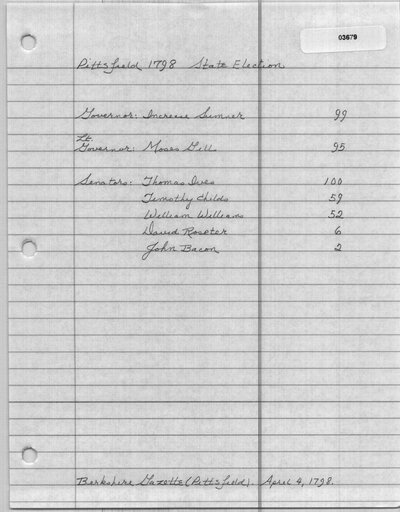 03679
Pittsfield 1798 State Election
Governor: Increase Sumner 99
Lt.
Governor: Moses Gill 95
Senators: Thomas Ives 100
Timothy Childs 59
William Williams 52
David Rosseter 6
John Bacon 2
Berkshire Gazette (Pittsfield). April 4, 1798.